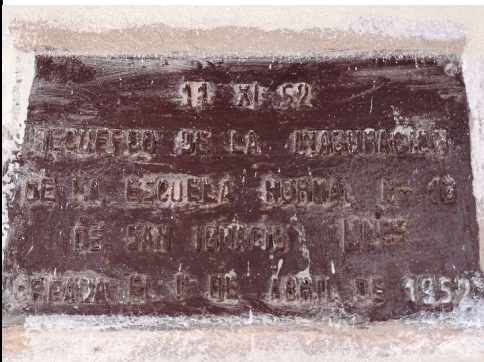 11 XI 52
RECUERDO DE LA INAGURACION
DE LA ESCUELA NORMAL Nº
DE SAN IGNACIO
CREADA EL 1º DE ABRIL DE 1952